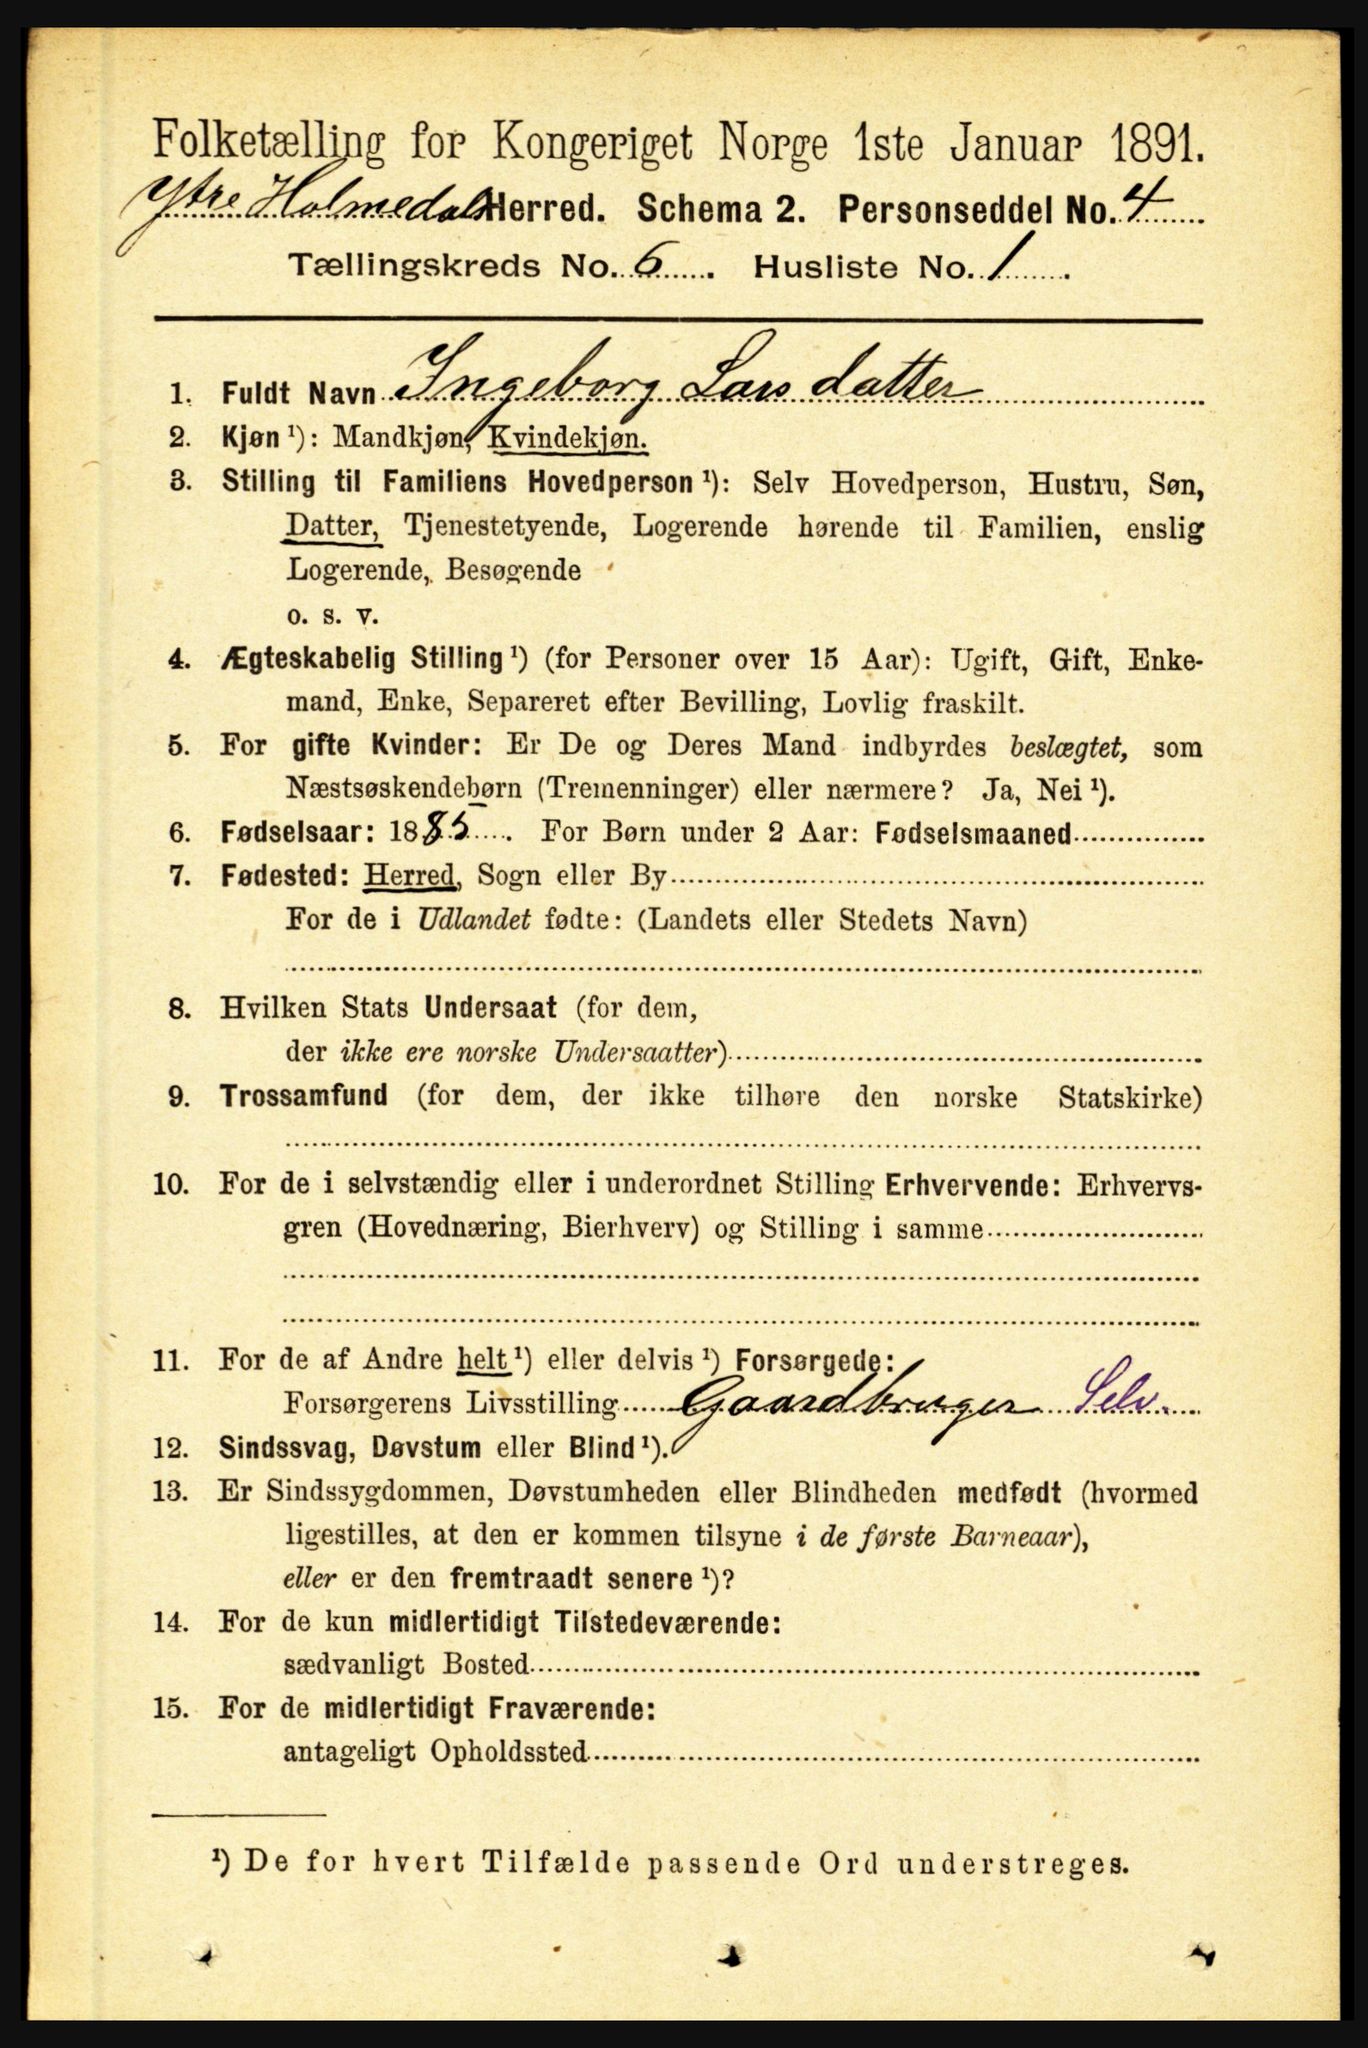 Folketælling for Kongeriget Norge 1ste Januar 1891.
Ytre Holmedals Herred. Schema 2. Personseddel No. 4
Tællingskreds No. 6. Husliste No. 1.
1. Fuldt Navn Ingeborg Larsdatter
2. Kjøn ¹): Mandkjøn, Kvindekjøn.
3. Stilling til Familiens Hovedperson ¹): Selv Hovedperson, Hustru, Søn,
Datter, Tjenestetyende, Logerende hørende til Familien, enslig
Logerende, Besøgende
o. s. v.
4. Ægteskabelig Stilling ¹) (for Personer over 15 Aar): Ugift, Gift, Enke-
mand, Enke, Separeret efter Bevilling, Lovlig fraskilt.
5. For gifte Kvinder: Er De og Deres Mand indbyrdes beslægtet, som
Næstsøskendebørn (Tremenninger) eller nærmere? Ja, Nei ¹).
6. Fødselsaar: 1885. For Børn under 2 Aar: Fødselsmaaned
7. Fødested: Herred, Sogn eller By
For de i Udlandet fødte: (Landets eller Stedets Navn)
8. Hvilken Stats Undersaat (for dem,
der ikke ere norske Undersaatter)
9. Trossamfund (for dem, der ikke tilhøre den norske Statskirke)
10. For de i selvstændig eller i underordnet Stilling Erhvervende: Erhvervs-
gren (Hovednæring, Bierhverv) og Stilling i samme
11. For de af Andre helt ¹) eller delvis ¹) Forsørgede:
Forsørgerens Livsstilling Gaardbruger Selv.
12. Sindssvag, Døvstum eller Blind ¹).
13. Er Sindssygdommen, Døvstumheden eller Blindheden medfødt (hvormed
ligestilles, at den er kommen tilsyne i de første Barneaar),
eller er den fremtraadt senere ¹)?
14. For de kun midlertidigt Tilstedeværende:
sædvanligt Bosted
15. For de midlertidigt Fraværende:
antageligt Opholdssted
¹) De for hvert Tilfælde passende Ord understreges.